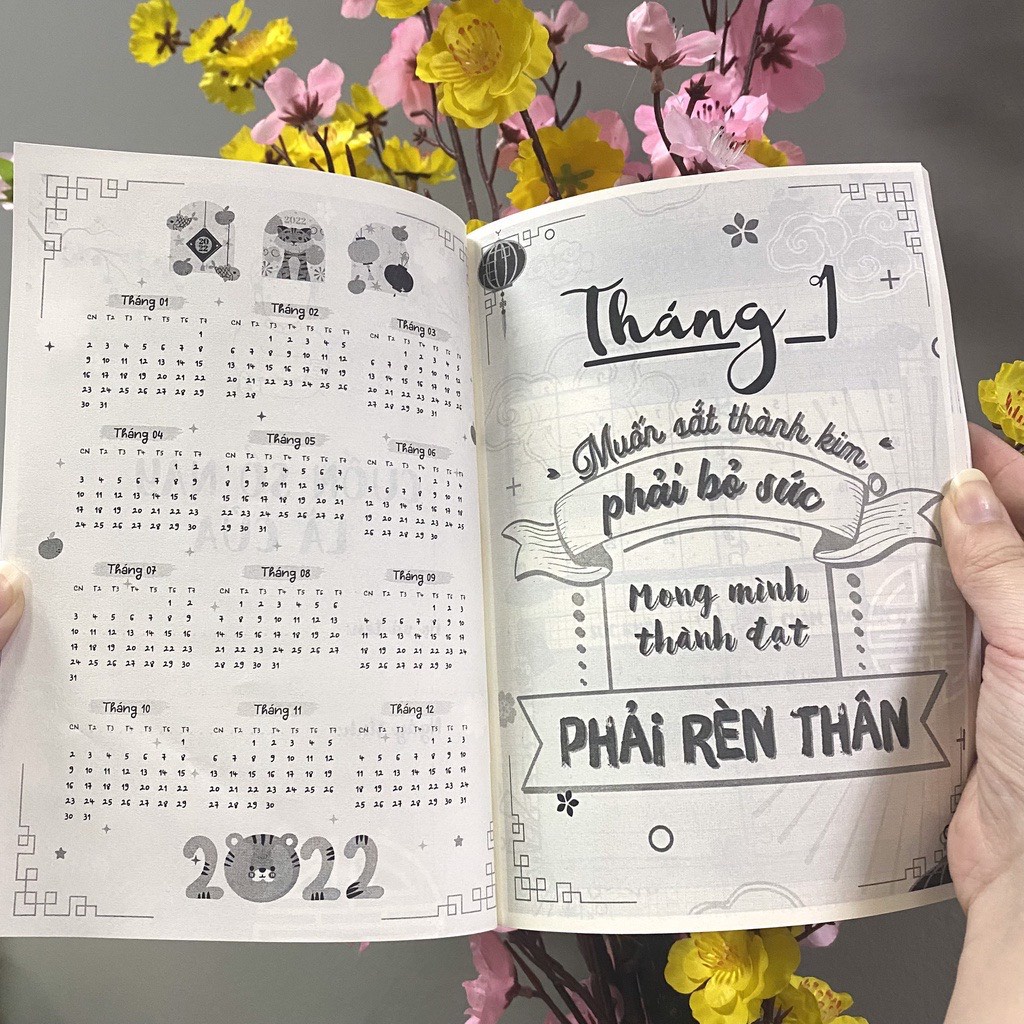 20
22
2022
Tháng 01
CN T2 T3 T4 T5 T6 T7
1
2 3 4 5 6 7 8
9 10 11 12 13 14 15
16 17 18 19 20 21 22
23 24 25 26 27 28 29
30 31
Tháng 02
CN T2 T3 T4 T5 T6 T7
1 2 3 4 5
6 7 8 9 10 11 12
13 14 15 16 17 18 19
20 21 22 23 24 25 26
27 28
Tháng 03
CN T2 T3 T4 T5 T6 T7
1 2 3 4 5
6 7 8 9 10 11 12
13 14 15 16 17 18 19
20 21 22 23 24 25 26
27 28 29 30 31
Tháng 04
CN T2 T3 T4 T5 T6 T7
1 2
3 4 5 6 7 8 9
10 11 12 13 14 15 16
17 18 19 20 21 22 23
24 25 26 27 28 29 30
Tháng 05
CN T2 T3 T4 T5 T6 T7
1 2 3 4 5 6 7
8 9 10 11 12 13 14
15 16 17 18 19 20 21
22 23 24 25 26 27 28
29 30 31
Tháng 06
CN T2 T3 T4 T5 T6 T7
1 2 3 4
5 6 7 8 9 10 11
12 13 14 15 16 17 18
19 20 21 22 23 24 25
26 27 28 29 30
Tháng 07
CN T2 T3 T4 T5 T6 T7
1 2
3 4 5 6 7 8 9
10 11 12 13 14 15 16
17 18 19 20 21 22 23
24 25 26 27 28 29 30
31
Tháng 08
CN T2 T3 T4 T5 T6 T7
1 2 3 4 5 6
7 8 9 10 11 12 13
14 15 16 17 18 19 20
21 22 23 24 25 26 27
28 29 30 31
Tháng 09
CN T2 T3 T4 T5 T6 T7
1 2 3
4 5 6 7 8 9 10
11 12 13 14 15 16 17
18 19 20 21 22 23 24
25 26 27 28 29 30
Tháng 10
CN T2 T3 T4 T5 T6 T7
1
2 3 4 5 6 7 8
9 10 11 12 13 14 15
16 17 18 19 20 21 22
23 24 25 26 27 28 29
30 31
Tháng 11
CN T2 T3 T4 T5 T6 T7
1 2 3 4 5
6 7 8 9 10 11 12
13 14 15 16 17 18 19
20 21 22 23 24 25 26
27 28 29 30
Tháng 12
CN T2 T3 T4 T5 T6 T7
1 2 3
4 5 6 7 8 9 10
11 12 13 14 15 16 17
18 19 20 21 22 23 24
25 26 27 28 29 30 31
2022
Tháng 1
Muốn sắt thành kim
phải bỏ sức
Mong mình
thành đạt
PHẢI RÈN THÂN